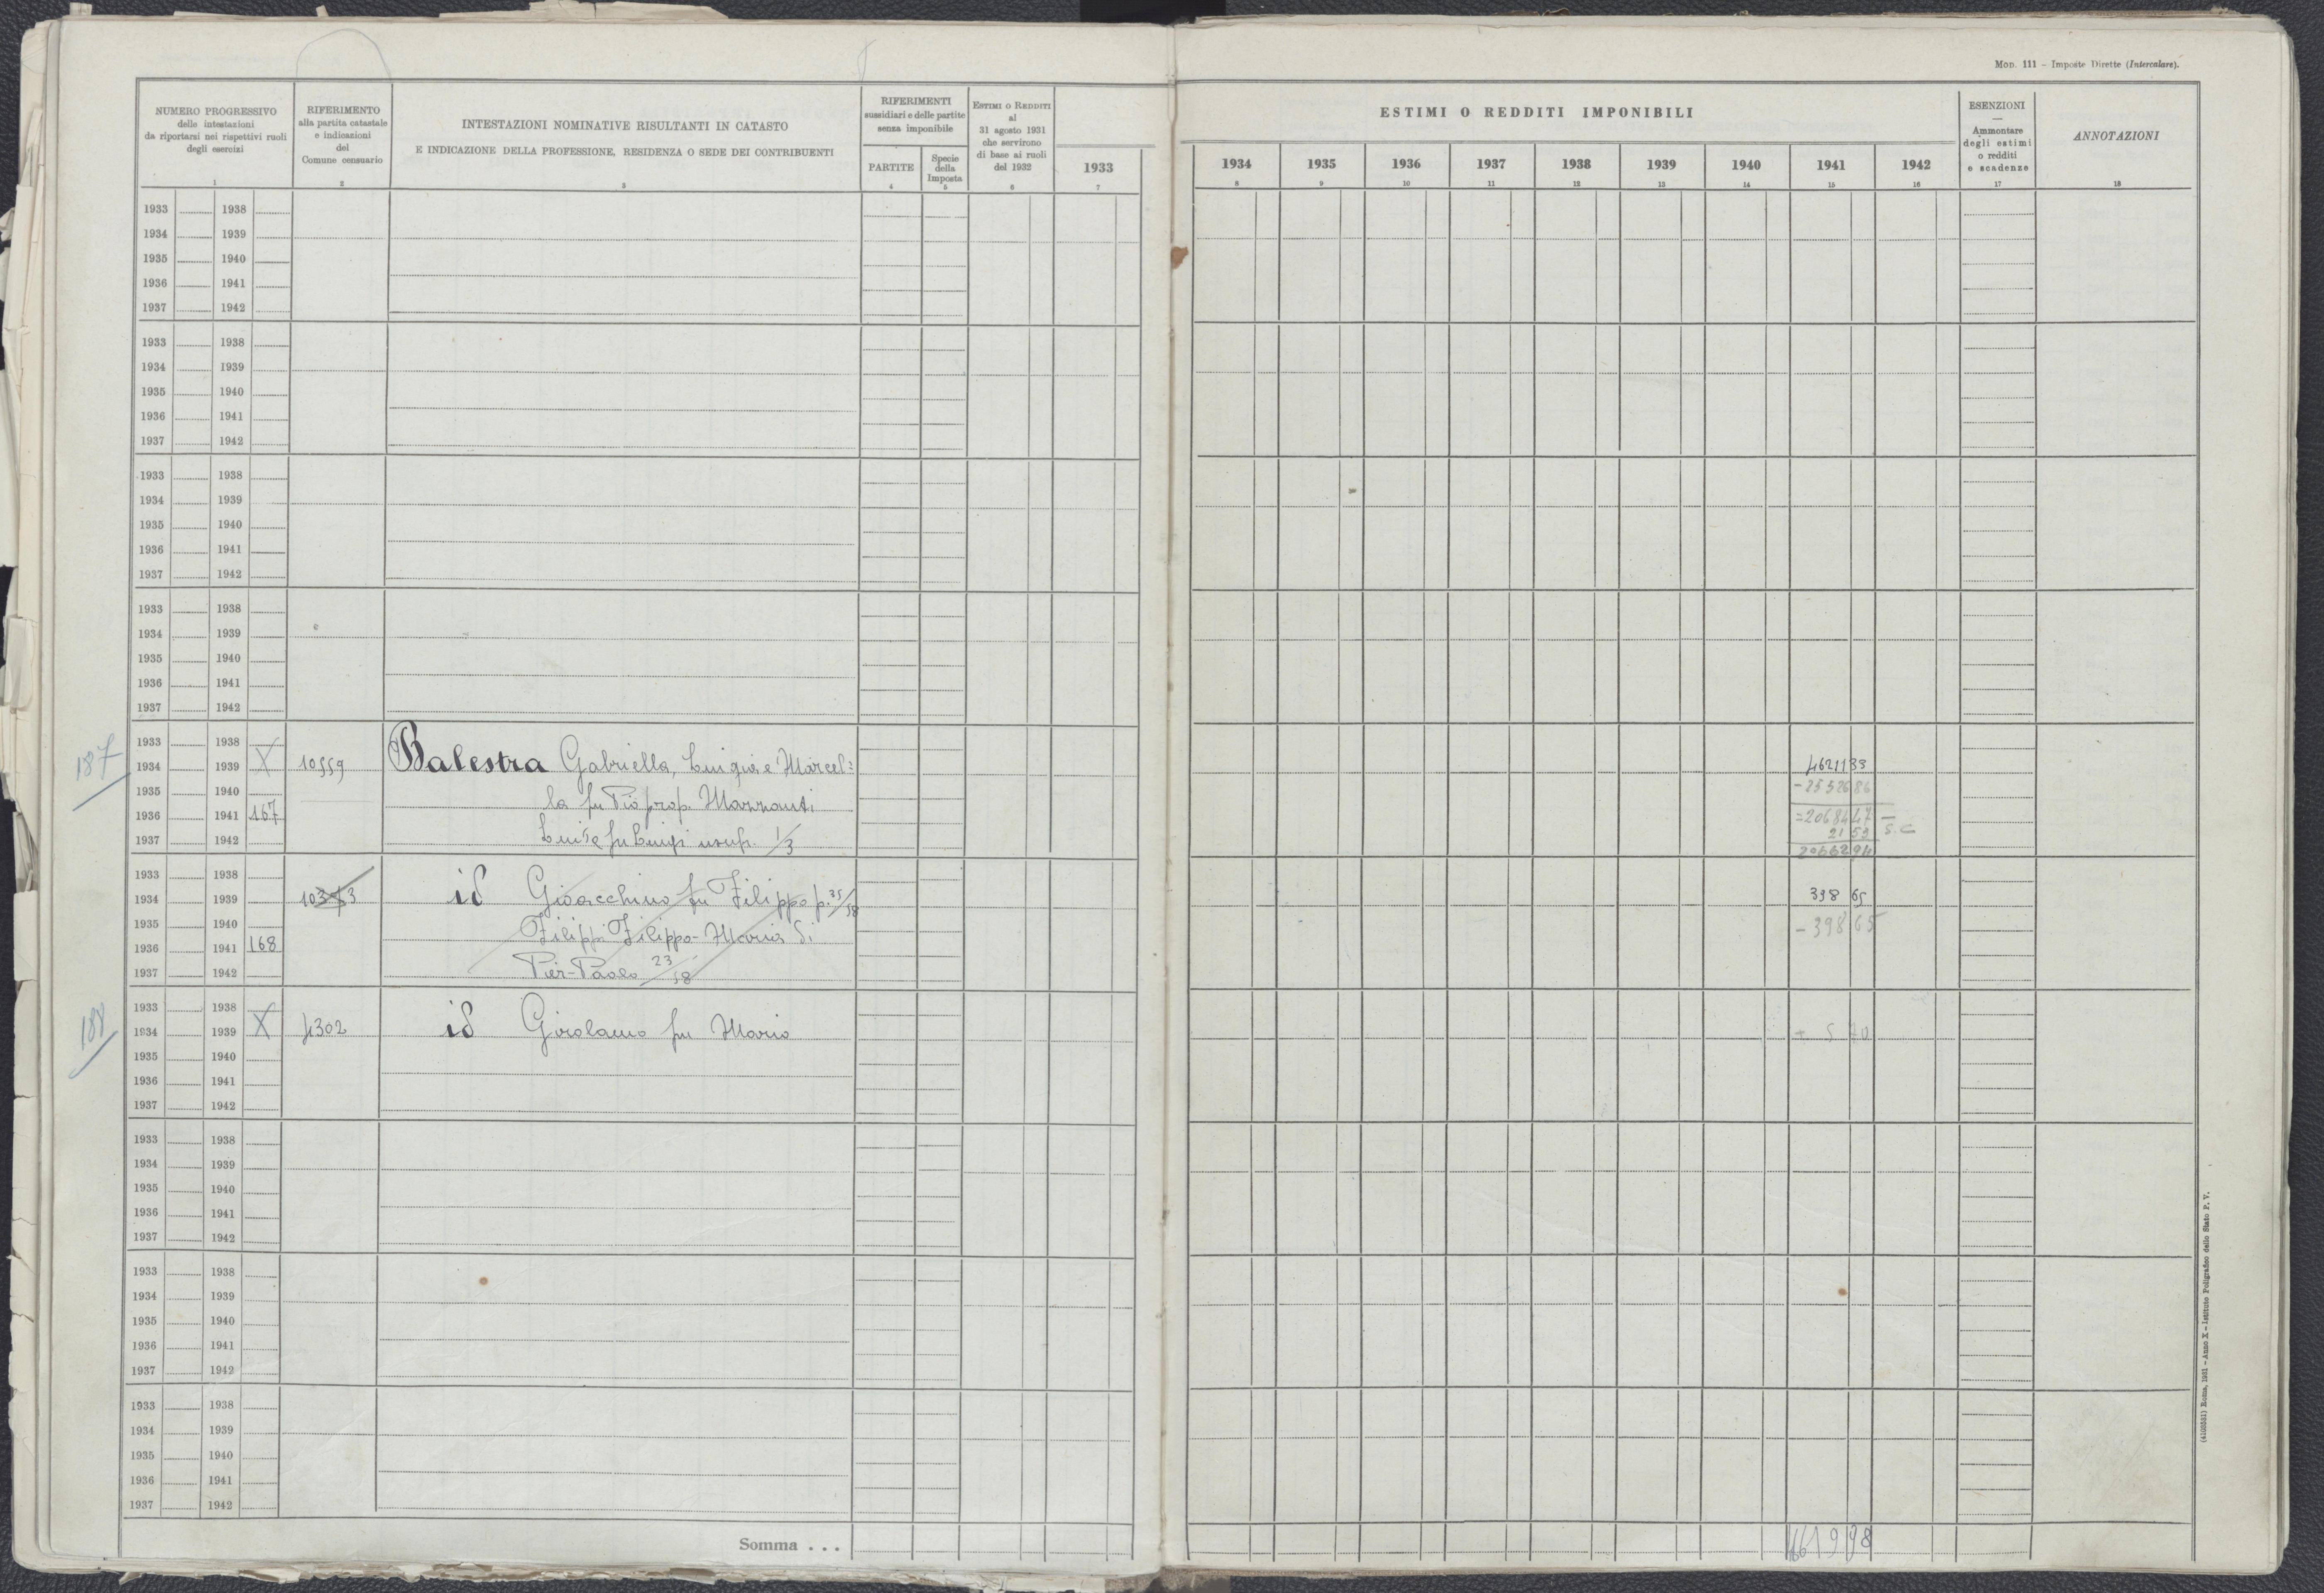 Mod. 111 – Imposte Dirette (Intercalare).
NUMERO PROGRESSIVO
delle intestazioni
da riportarsi nei rispettivi ruoli
degli esercizi
1
RIFERIMENTO
alla partita catastale
e indicazioni
del
Comune censuario
2
INTESTAZIONI NOMINATIVE RISULTANTI IN CATASTO
E INDICAZIONE DELLA PROFESSIONE, RESIDENZA O SEDE DEI CONTRIBUENTI
3
RIFERIMENTI
sussidiari e delle partite
senza imponibile
PARTITE
4
Specie
della
Imposta
5
Estimi o Redditi
al
31 agosto 1931
che servirono
di base ai ruoli
del 1932
6
1933
7
ESTIMI O REDDITI IMPONIBILI
1934 1935 1936 1937 1938 1939 1940 1941 1942
8 9 10 11 12 13 14 15 16
ESENZIONI
—
Ammontare
degli estimi
o redditi
e scadenze
17
ANNOTAZIONI
18
1933 1938
1934 1939
1935 1940
1936 1941
1937 1942
1933 1938
1934 1939
1935 1940
1936 1941
1937 1942
1933 1938
1934 1939
1935 1940
1936 1941
1937 1942
1933 1938
1934 1939
1935 1940
1936 1941
1937 1942
187
1933 1938
1934 1939 X 10559 Balestra Gabriella, Luigia e Marcel= 4621133
1935 1940 la fu Pio prop. Mazzanti -2552686
1936 1941 167 =2068447 –
1937 1942 Luisa fu Luigi usuf. 1/3 21 53 S.C
2066294
1933 1938
1934 1939 10373 id Gioacchino fu Filippo p. 35/58 398 65
1935 1940 Filippi Filippo-Maria di -398 65
1936 1941 168
1937 1942 Pier-Paolo 23/58
188
1933 1938
1934 1939 X 4302 id Girolamo fu Mario + 5 70
1935 1940
1936 1941
1937 1942
1933 1938
1934 1939
1935 1940
1936 1941
1937 1942
1933 1938
1934 1939
1935 1940
1936 1941
1937 1942
1933 1938
1934 1939
1935 1940
1936 1941
1937 1942
Somma . . . 4661998
(4103551) Roma, 1931 – Anno X – Istituto Poligrafico dello Stato P. V.